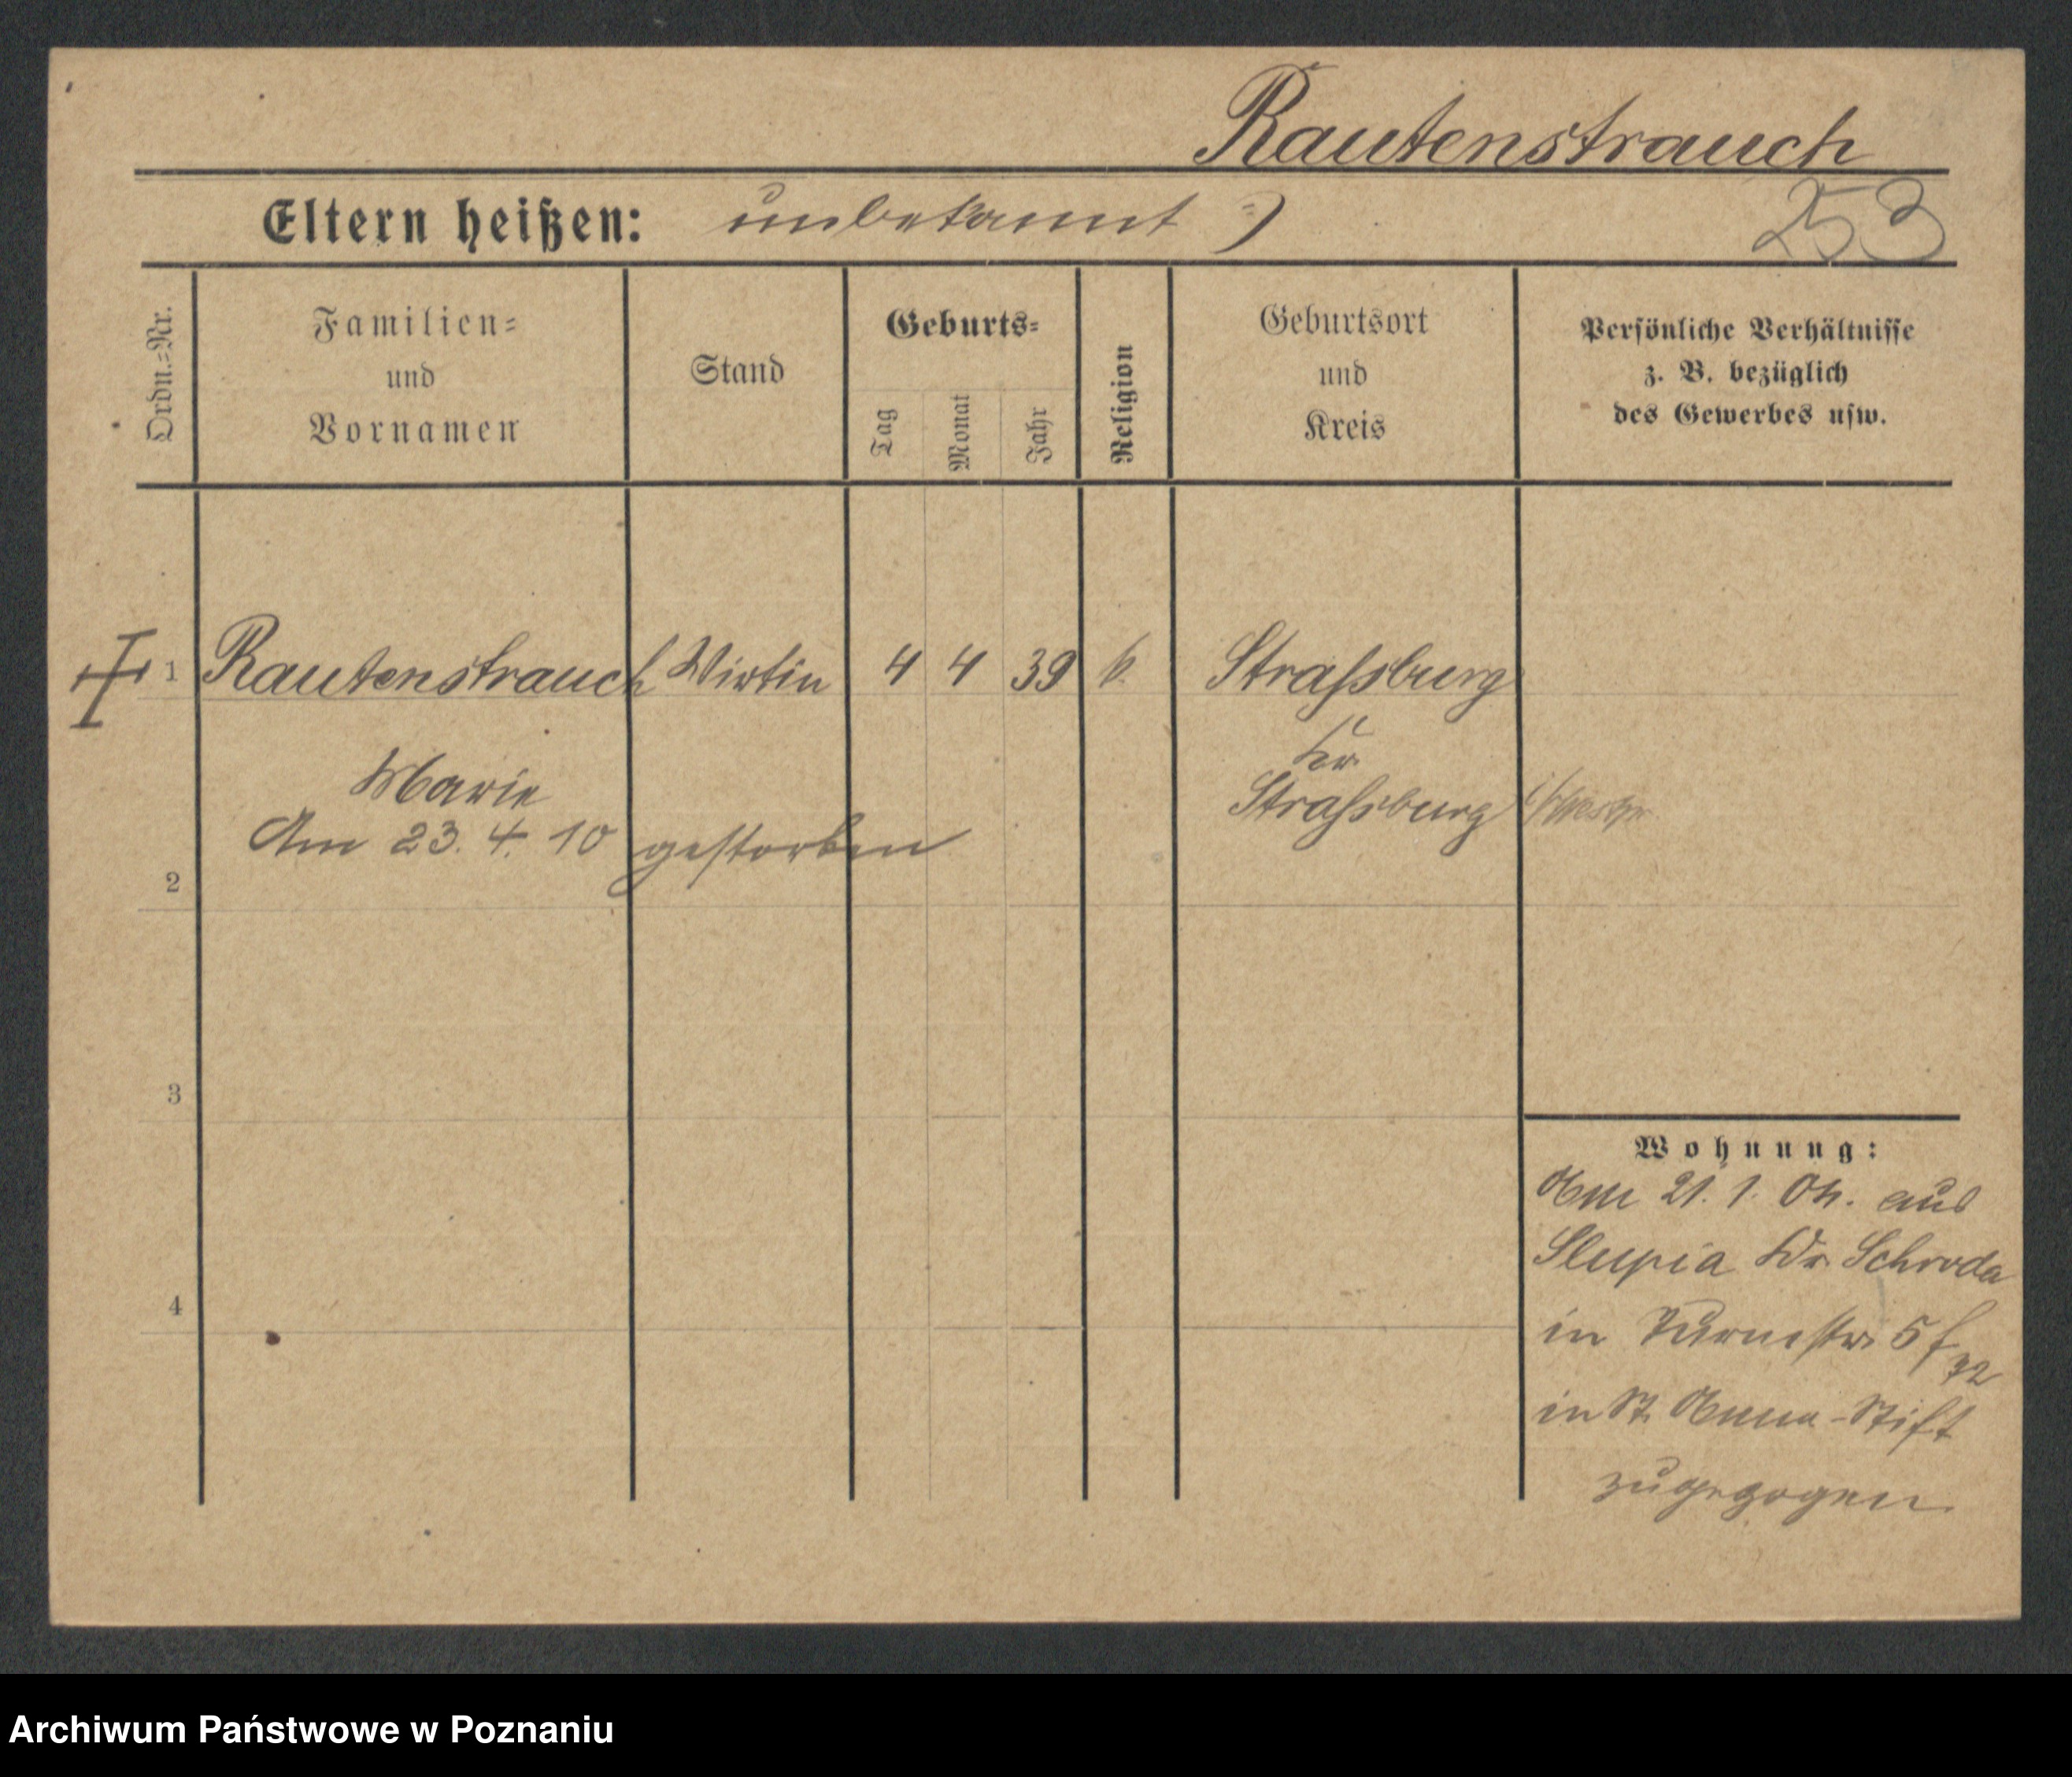 Rautenstrauch
Eltern heißen: unbekannt
253
Ordn.=Nr.
Familien=
und
Vornamen
Stand
Geburts=
Tag
Monat
Jahr
Religion
Geburtsort
und
Kreis
Persönliche Verhältnisse
z. B. bezüglich
des Gewerbes usw.
1 Rautenstrauch Wirtin 4 4 39 Straſsburg
Marie
Kr.
Am 23. 4. 10 gestorben
Straſsburg i/Westpr
2
3
4
Wohnung:
Am 21. 1. 04. aus
Slupia Kr. Schroda
in Turmstr. 5
in St. Anna-Stift
zugezogen.
Archiwum Państwowe w Poznaniu